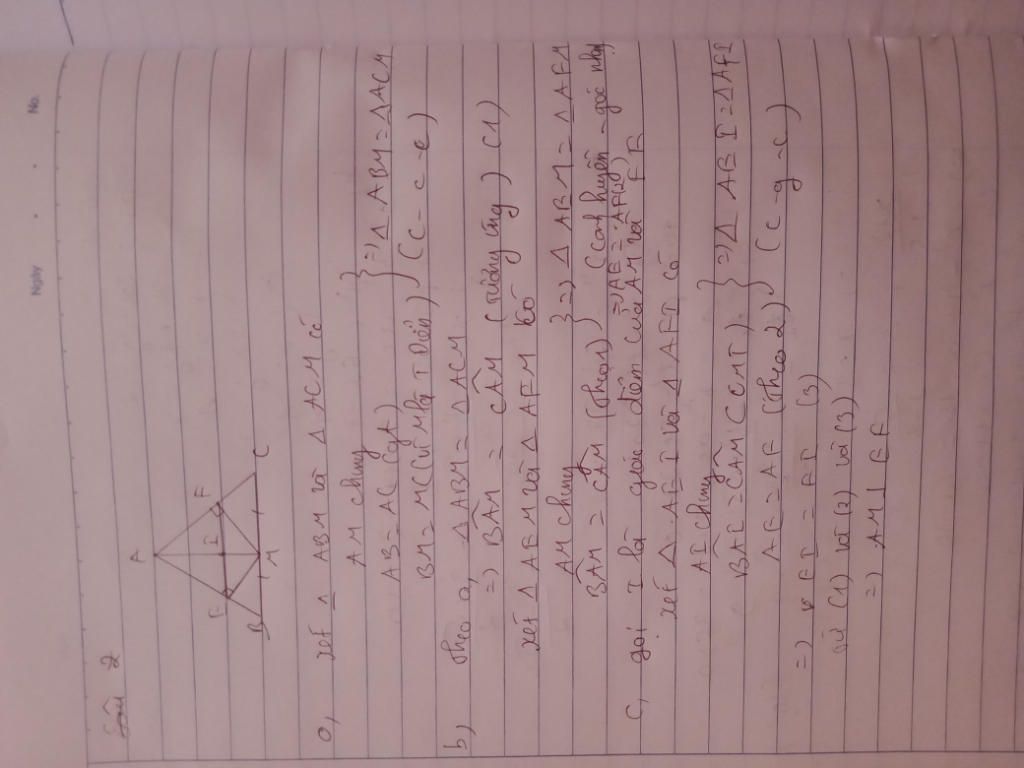 Ngày No.
Câu 2
A
E I F
B M C
a, xét Δ ABM và Δ ACM có
AM chung
AB = AC (gt)
BM = MC (vì M là T Điểm)
} => Δ ABM = Δ ACM
(c - c - c)
b) theo a, Δ ABM = Δ ACM
=> BÂM = CÂM (tương ứng) (1)
xét Δ AEM và Δ AFM có
AM chung
BÂM = CÂM (theo 1)
} => Δ ABM = Δ AFM
(cạnh huyền - góc nhọn)
=> AE = AF (2)
c, gọi I là giao điểm của AM và EF
xét Δ AEI và Δ AFI có
AI chung
BÂC = CÂM (CMT)
AE = AF (theo 2)
} => Δ ABI = Δ AFI
(c - g - c)
=> EI = FI (3)
từ (1) và (2) và (3)
=> AM ⊥ EF